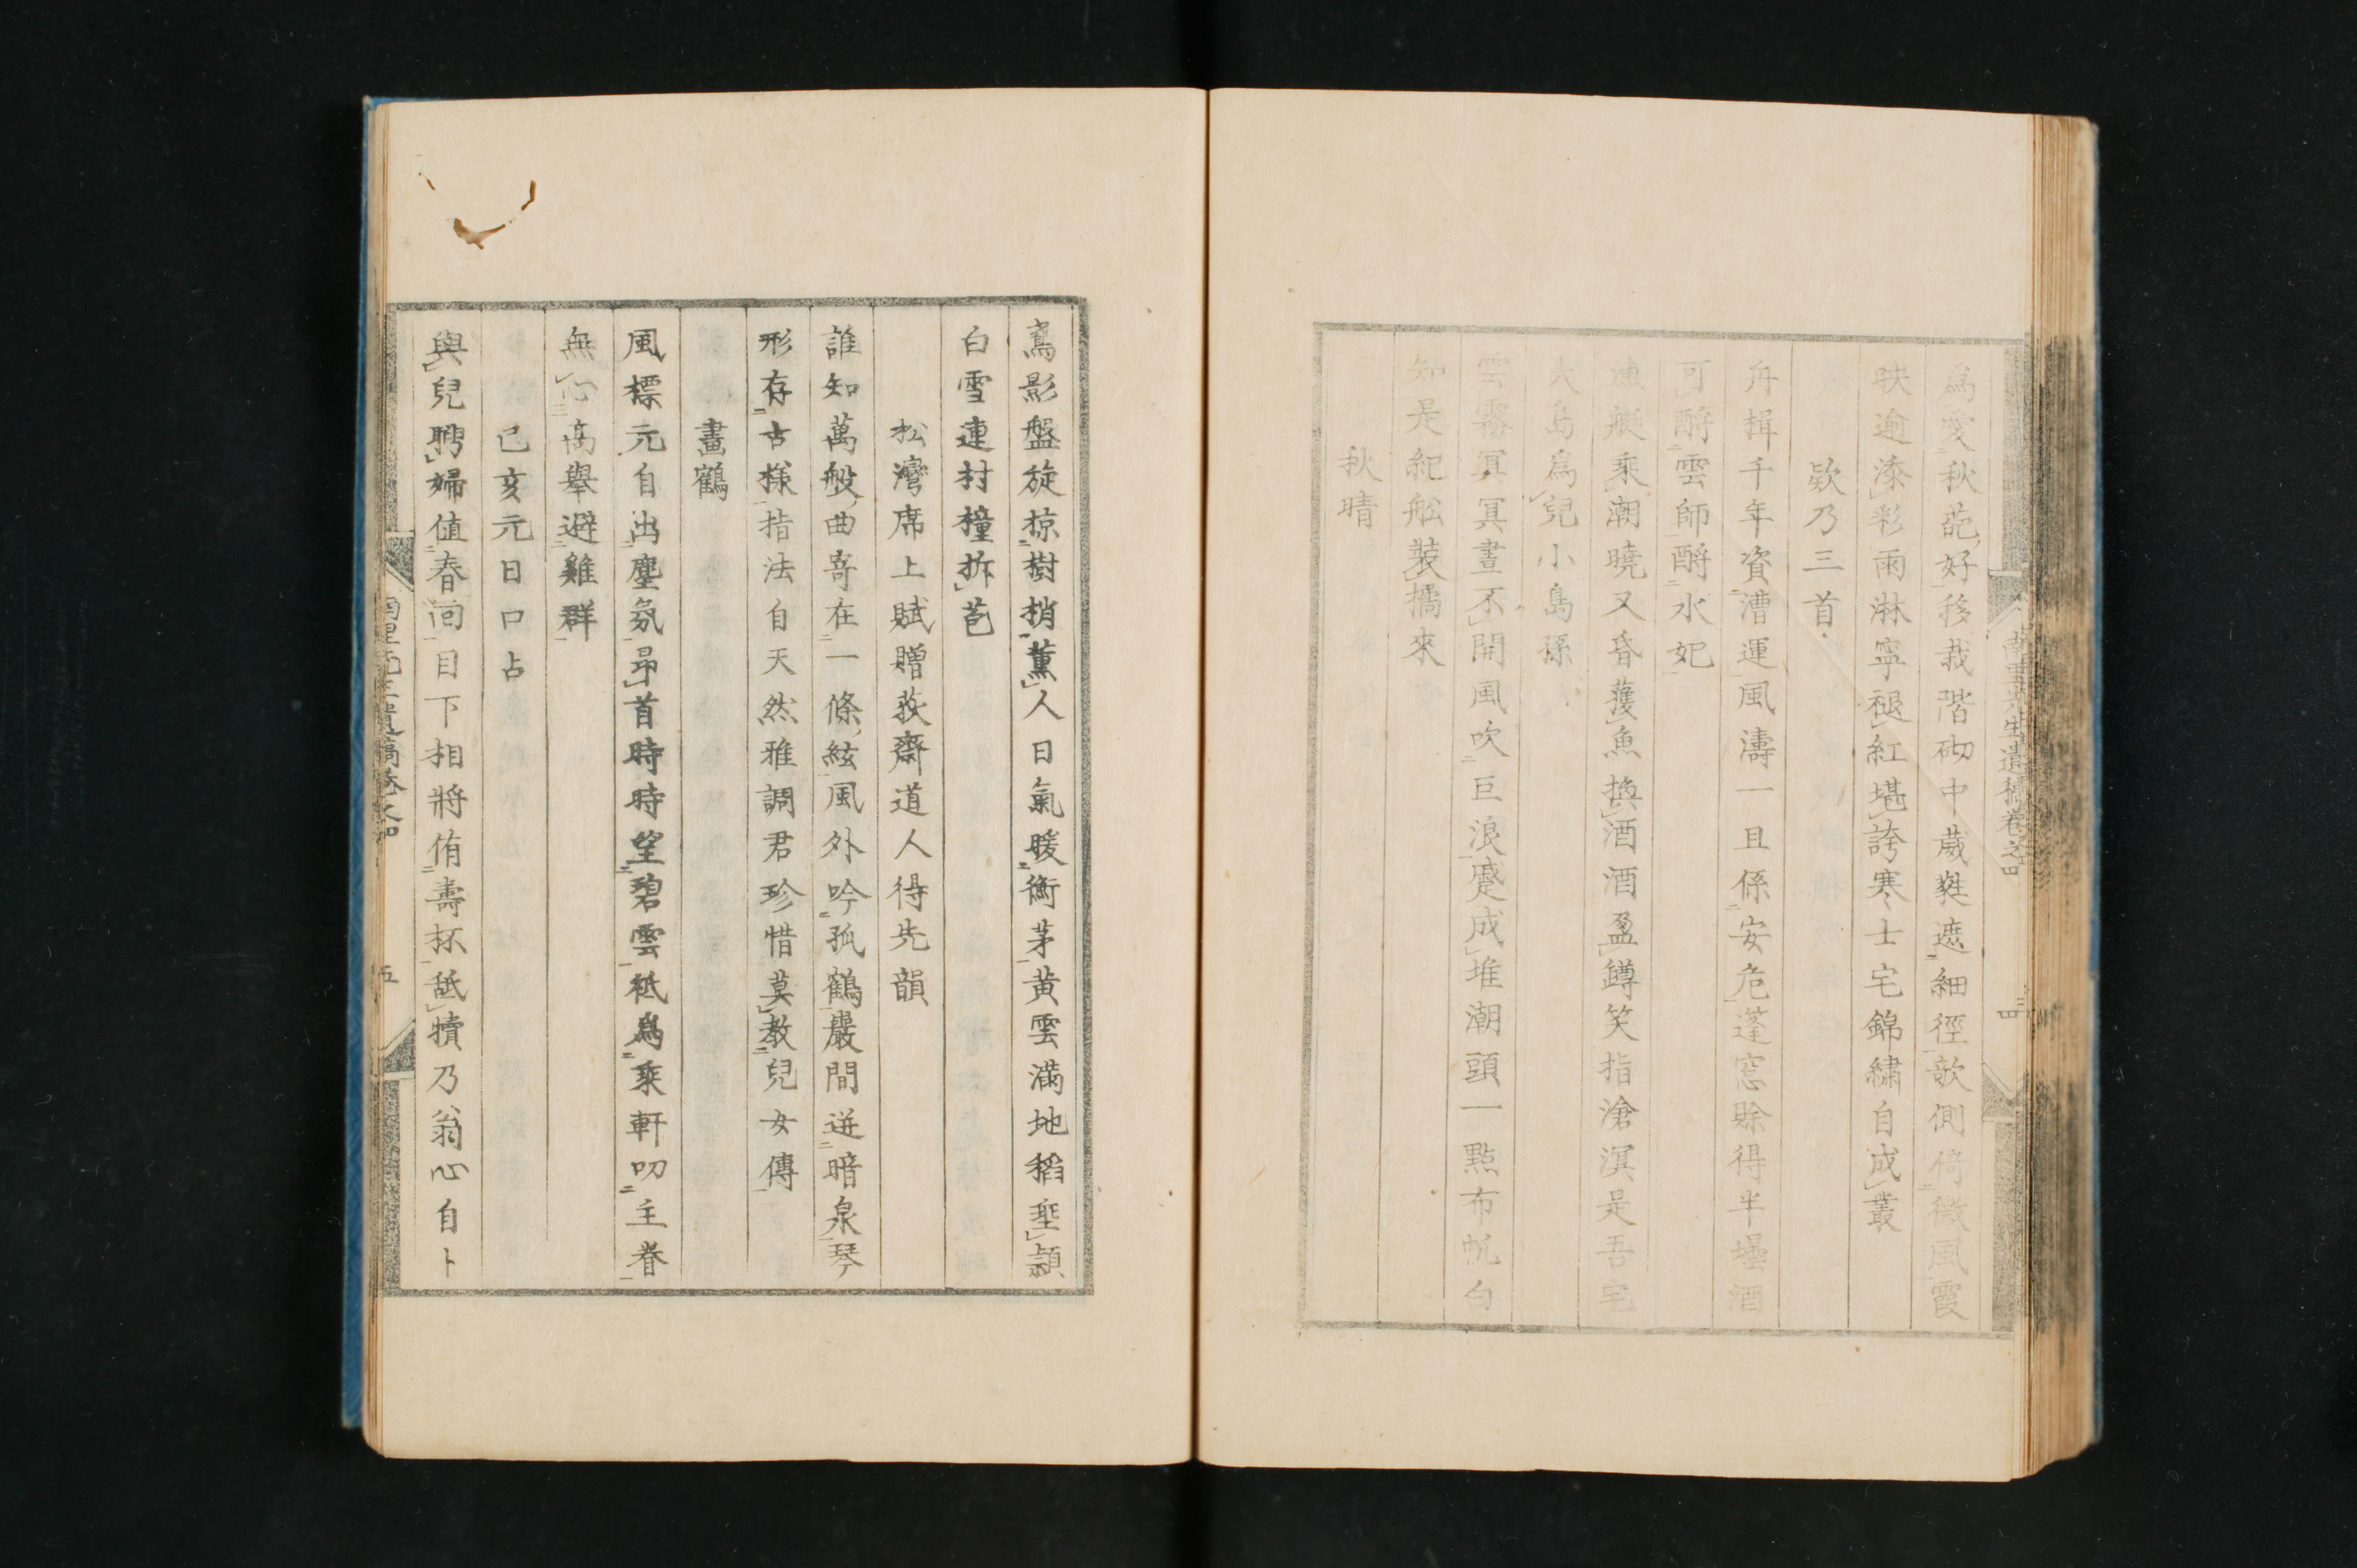 爲愛秋葩好移栽階砌中葳蕤遮細徑欹側倚微風霞
映逾添彩雨淋寧褪紅堪誇寒士宅錦繡自成叢
欸乃三首
舟楫千年資漕運風濤一旦係安危蓬窓賒得半壜酒
可酹雲師酹水妃
漁艇乘潮曉又昏獲魚換酒酒盈罇笑指滄溟是吾宅
大島爲兒小島孫
雲霧冥冥晝不開風吹巨浪蹙成堆潮頭一點布帆白
知是紀舩裝橘來
秋晴
南里先生遺稿卷之四
四
鳶影盤旋掠樹梢薰人日氣暖衡茅黃雲滿地稻垂穎
白雪連村橦拆苞
松灣席上賦贈荻齋道人得先韻
誰知萬般曲寄在一條絃風外吟孤鶴巖間迸暗泉琴
形存古樣指法自天然雅調君珍惜莫教兒女傳
畫鶴
風標元自出塵氛昂首時時望碧雲秪爲乘軒叨主眷
無心高舉避雞群
己亥元日口占
與兒聘婦値春回目下相將侑壽杯舐犢乃翁心自卜
南里先生遺稿卷之四
五